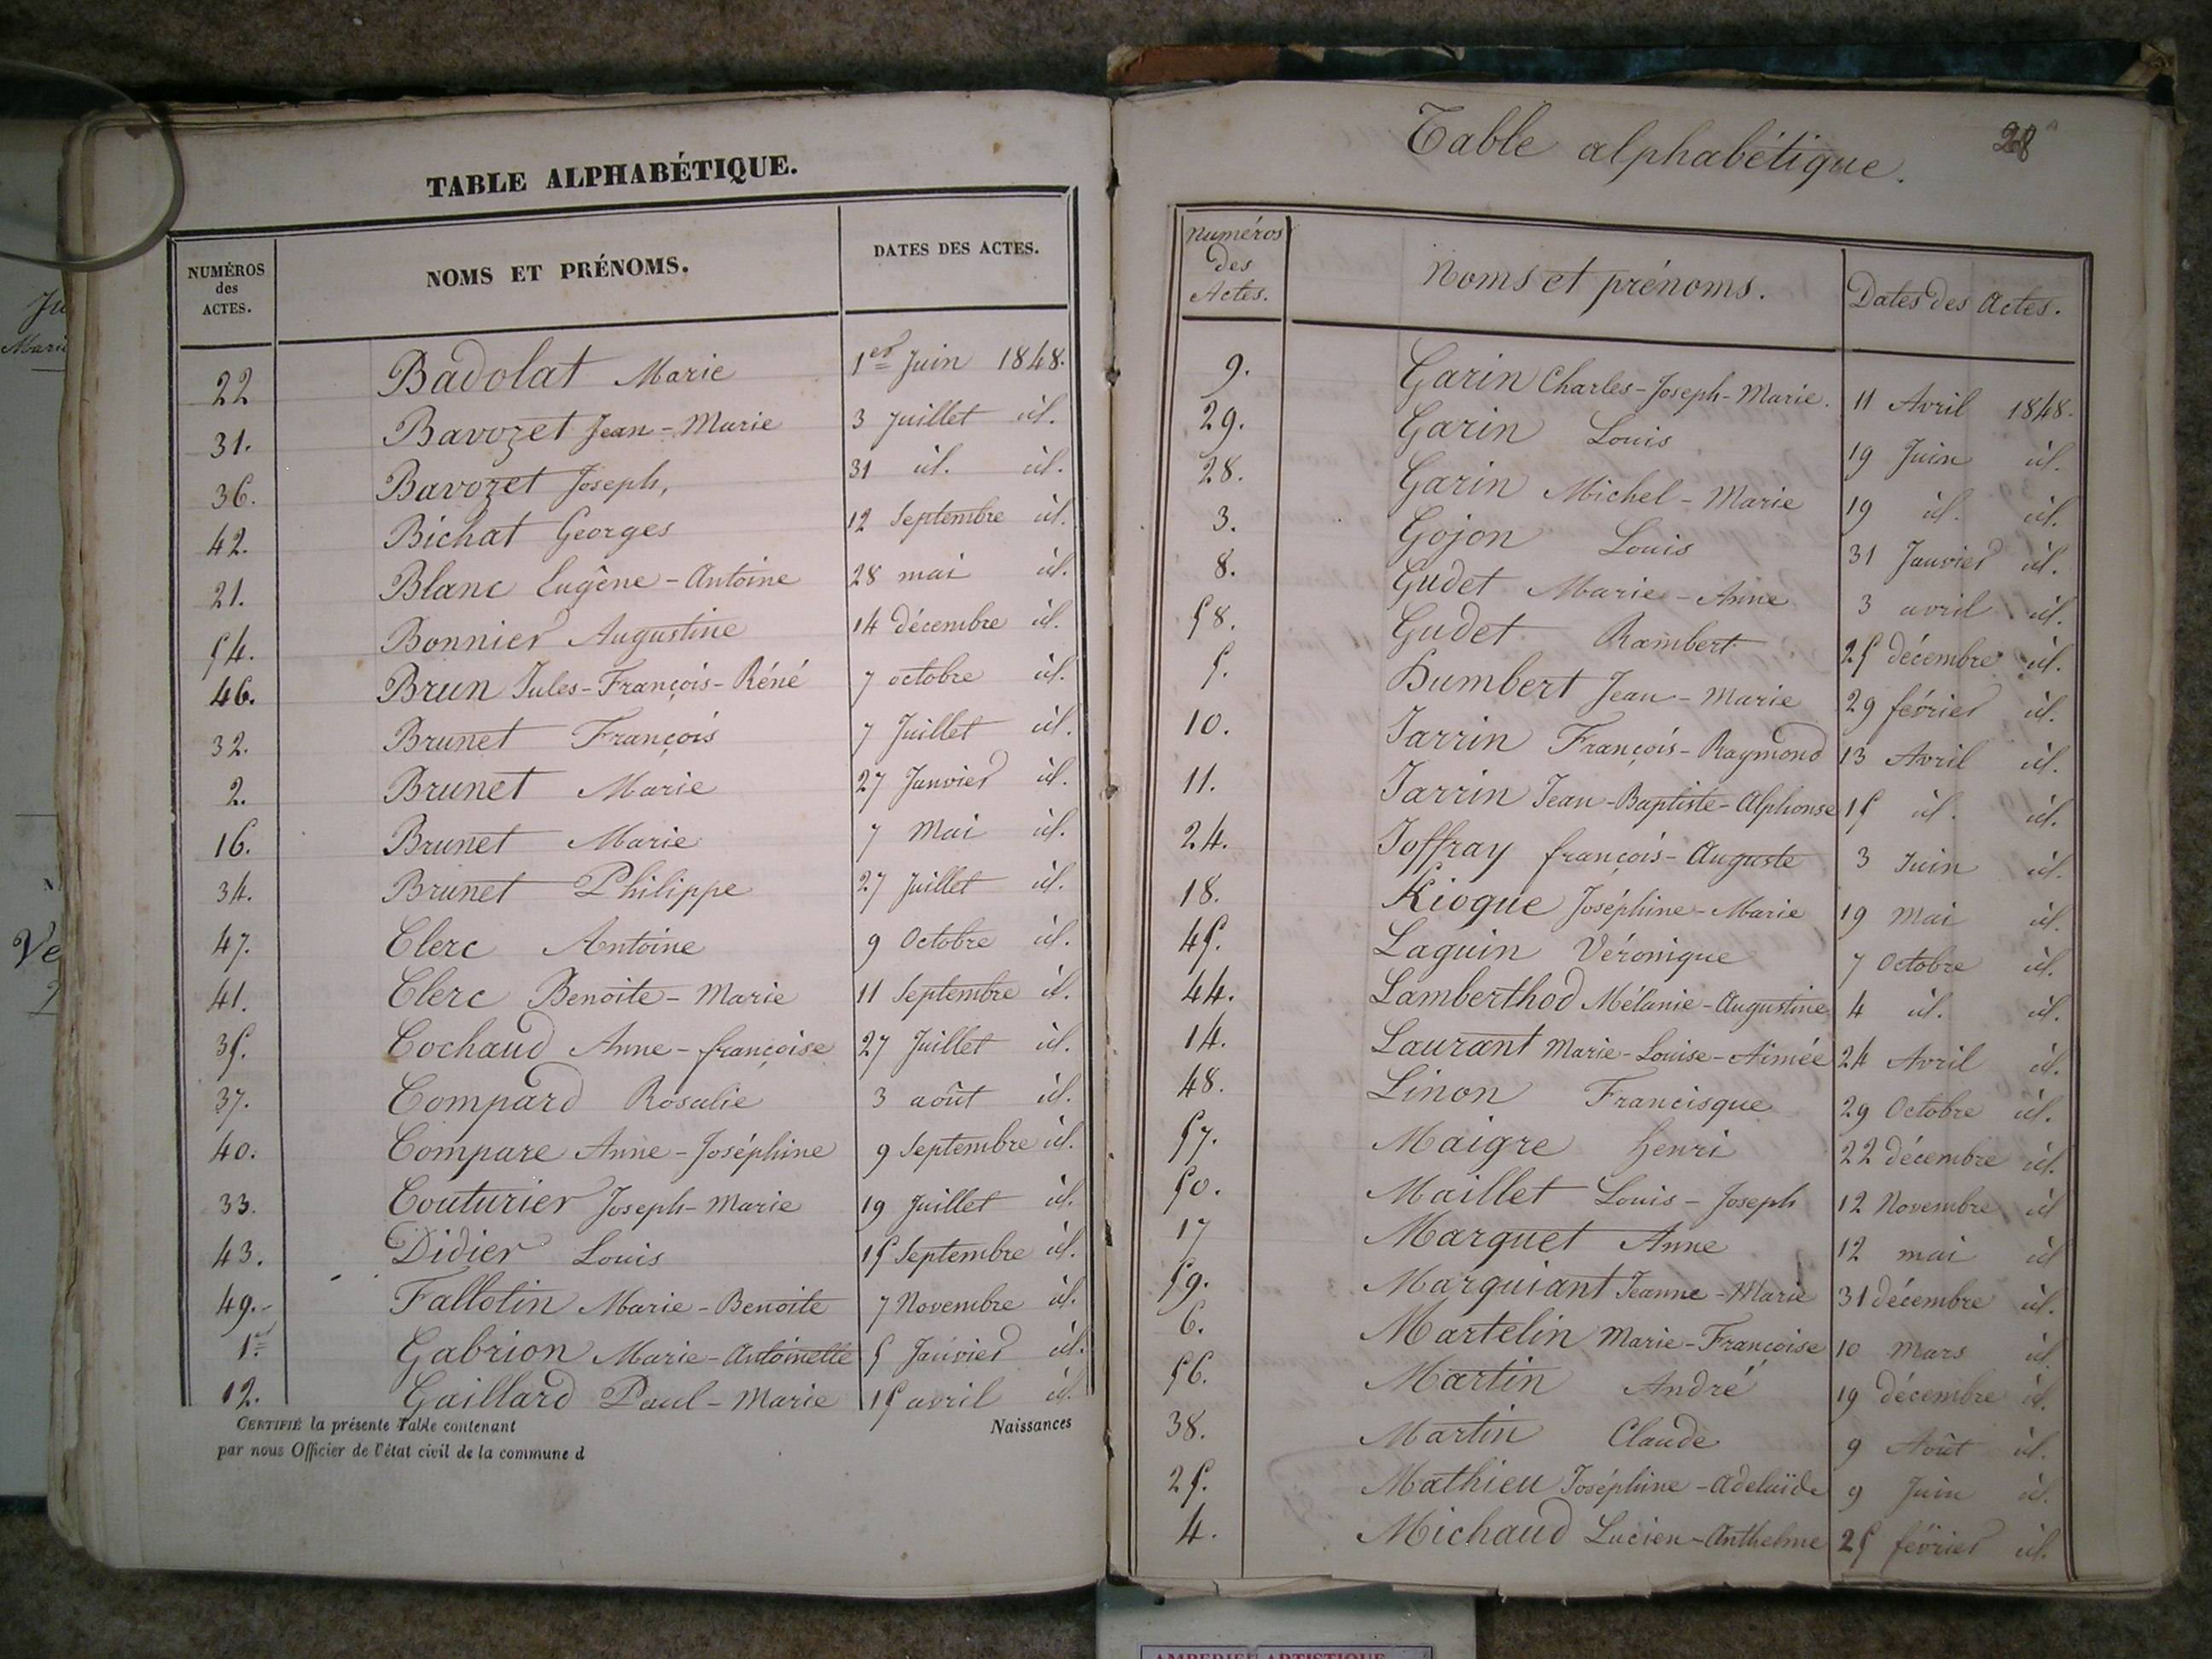 TABLE ALPHABÉTIQUE.
NUMÉROS des ACTES. NOMS ET PRÉNOMS. DATES DES ACTES.
22 Badolat Marie 1er Juin 1848.
31. Bavozet Jean-Marie 3 Juillet id.
36. Bavozet Joseph, 31 id. id.
42. Bichat Georges 12 Septembre id.
21. Blanc Eugêne-Antoine 28 mai id.
54. Bonnier Augustine 14 décembre id.
46. Brun Jules-François-Réné 7 octobre id.
32. Brunet François 7 Juillet id.
2. Brunet Marie 27 Janvier id.
16. Brunet Marie 7 Mai id.
34. Brunet Philippe 27 Juillet id.
47. Clerc Antoine 9 Octobre id.
41. Clerc Benoite-Marie 11 Septembre id.
35. Cochaud Anne-françoise 27 Juillet id.
37. Compard Rosalie 3 août id.
40. Compare Anne-Joséphine 9 Septembre id.
33. Couturier Joseph-Marie 19 Juillet id.
43. Didier Louis 15 Septembre id.
49. Fallotin Marie-Benoite 7 Novembre id.
1er Gabrion Marie-Antoinette 5 Janvier id.
12. Gaillard Paul-Marie 15 avril id.
CERTIFIÉ la présente Table contenant Naissances
par nous Officier de l'état civil de la commune d
Table alphabétique. 28
Numéros des Actes. Noms et prénoms. Dates des Actes.
9. Garin Charles-Joseph-Marie. 11 Avril 1848.
29. Garin Louis 19 Juin id.
28. Garin Michel-Marie 19 id. id.
3. Gojon Louis 31 Janvier id.
8. Gudet Marie-Anne 3 avril id.
58. Gudet Rambert 25 décembre id.
5. Humbert Jean-Marie 29 février id.
10. Jarrin François-Raymond 13 Avril id.
11. Jarrin Jean-Baptiste-Alphonse 15 id. id.
24. Joffray françois-Auguste 3 Juin id.
18. Kiogue Joséphine-Marie 19 Mai id.
45. Laguin Véronique 7 Octobre id.
44. Lamberthod Mélanie-Augustine 4 id. id.
14. Laurant Marie-Louise-Aimée 24 Avril id.
48. Linon Francisque 29 Octobre id.
57. Maigre henri 22 décembre id.
50. Maillet Louis-Joseph 12 Novembre id
17 Marquet Anne 12 mai id
59. Marquiant Jeanne-Marie 31 décembre id.
6. Martelin Marie-Françoise 10 Mars id.
56. Martin André 19 décembre id.
38. Martin Claude 9 Août id.
25. Mathieu Joséphine-Adelaïde 9 Juin id.
4. Michaud Lucien-Anthelme 25 février id.